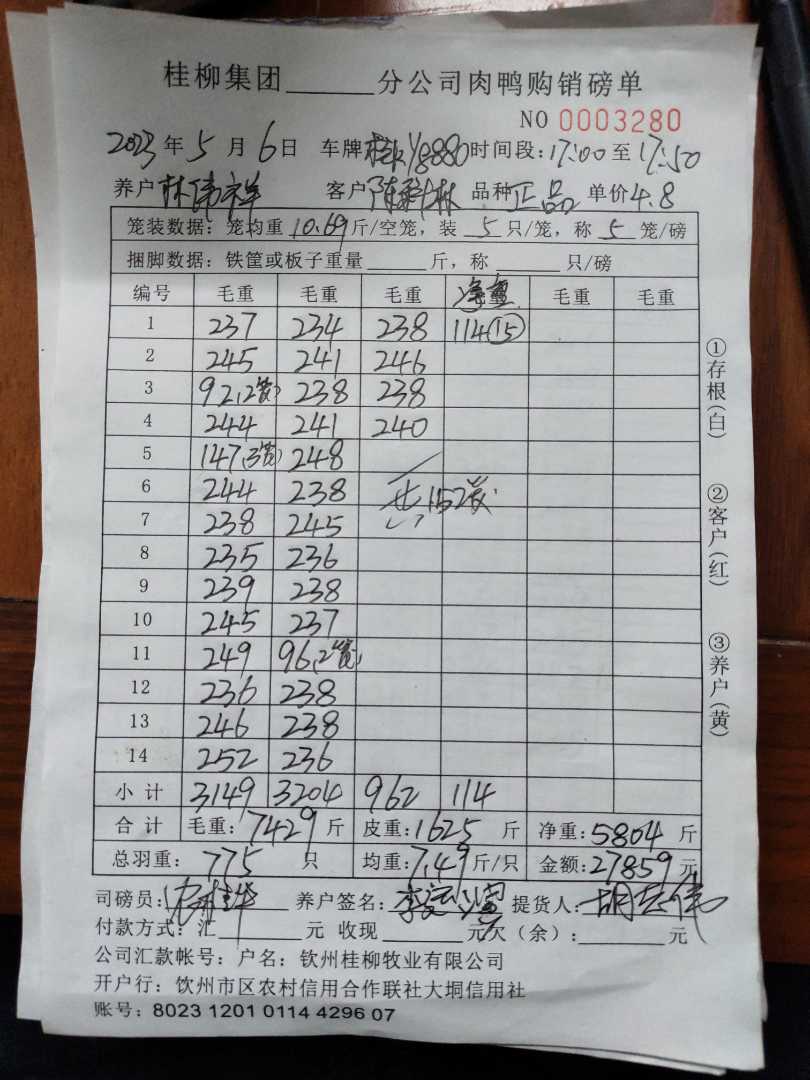 桂柳集团______分公司肉鸭购销磅单
NO 0003280
2023年5月6日 车牌 Y8880 时间段:17:00至17:50
养户 林伟祥 客户 陈 林 品种 正品 单价 4.8
笼装数据: 笼均重 10.69 斤/空笼, 装 5 只/笼, 称 5 笼/磅
捆脚数据: 铁筐或板子重量______斤, 称______只/磅
编号 毛重 毛重 毛重 净重 毛重 毛重
1 237 234 238 114(15)
2 245 241 246
3 92(2笼) 238 238
4 244 241 240
5 147(3笼) 248
6 244 238 共152笼
7 238 245
8 235 236
9 239 238
10 245 237
11 249 96(2笼)
12 236 238
13 246 238
14 252 236
小计 3149 3204 962 114
合计 毛重: 7429 斤 皮重: 1625 斤 净重: 5804 斤
总羽重: 775 只 均重: 7.49 斤/只 金额: 27859 元
司磅员: 养户签名: 提货人:
付款方式: 汇______元 收现______元欠(余):______元
公司汇款帐号: 户名: 钦州桂柳牧业有限公司
开户行: 饮州市区农村信用合作联社大垌信用社
账号: 8023 1201 0114 4296 07
①存根(白)
②客户(红)
③养户(黄)